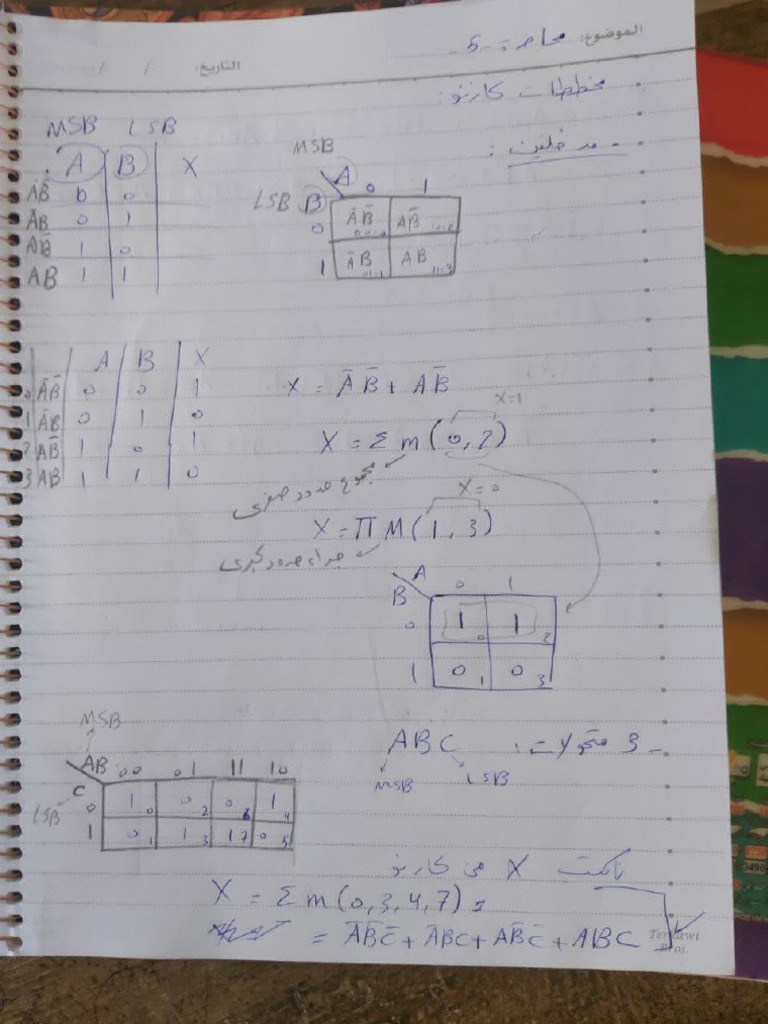 الموضوع: محاضرة -5-
التاريخ: / /
مخططات كارنو:
- مدخلين:
MSB LSB
A B X
A̅B̅ 0 0
A̅B 0 1
AB̅ 1 0
AB 1 1
MSB
A 0 1
LSB B
0 A̅B̅ 00=0 AB̅ 10=2
1 A̅B 01=1 AB 11=3
A B X
0 A̅B̅ 0 0 1
1 A̅B 0 1 0
2 AB̅ 1 0 1
3 AB 1 1 0
X = A̅B̅ + AB̅
X=1
X = Σ m(0,2)
مجموع حدود صغرى
X=0
X = Π M(1,3)
جداء حدود كبرى
A 0 1
B
0 1 0 1 2
1 0 1 0 3
- 3 متحولات: ABC
MSB LSB
MSB
AB 00 01 11 10
C
LSB
0 1 0 0 2 0 6 1 4
1 0 1 1 3 1 7 0 5
X كارنو
X = Σ m(0,3,4,7)
= A̅B̅C̅ + A̅BC + AB̅C̅ + ABC
Bros.